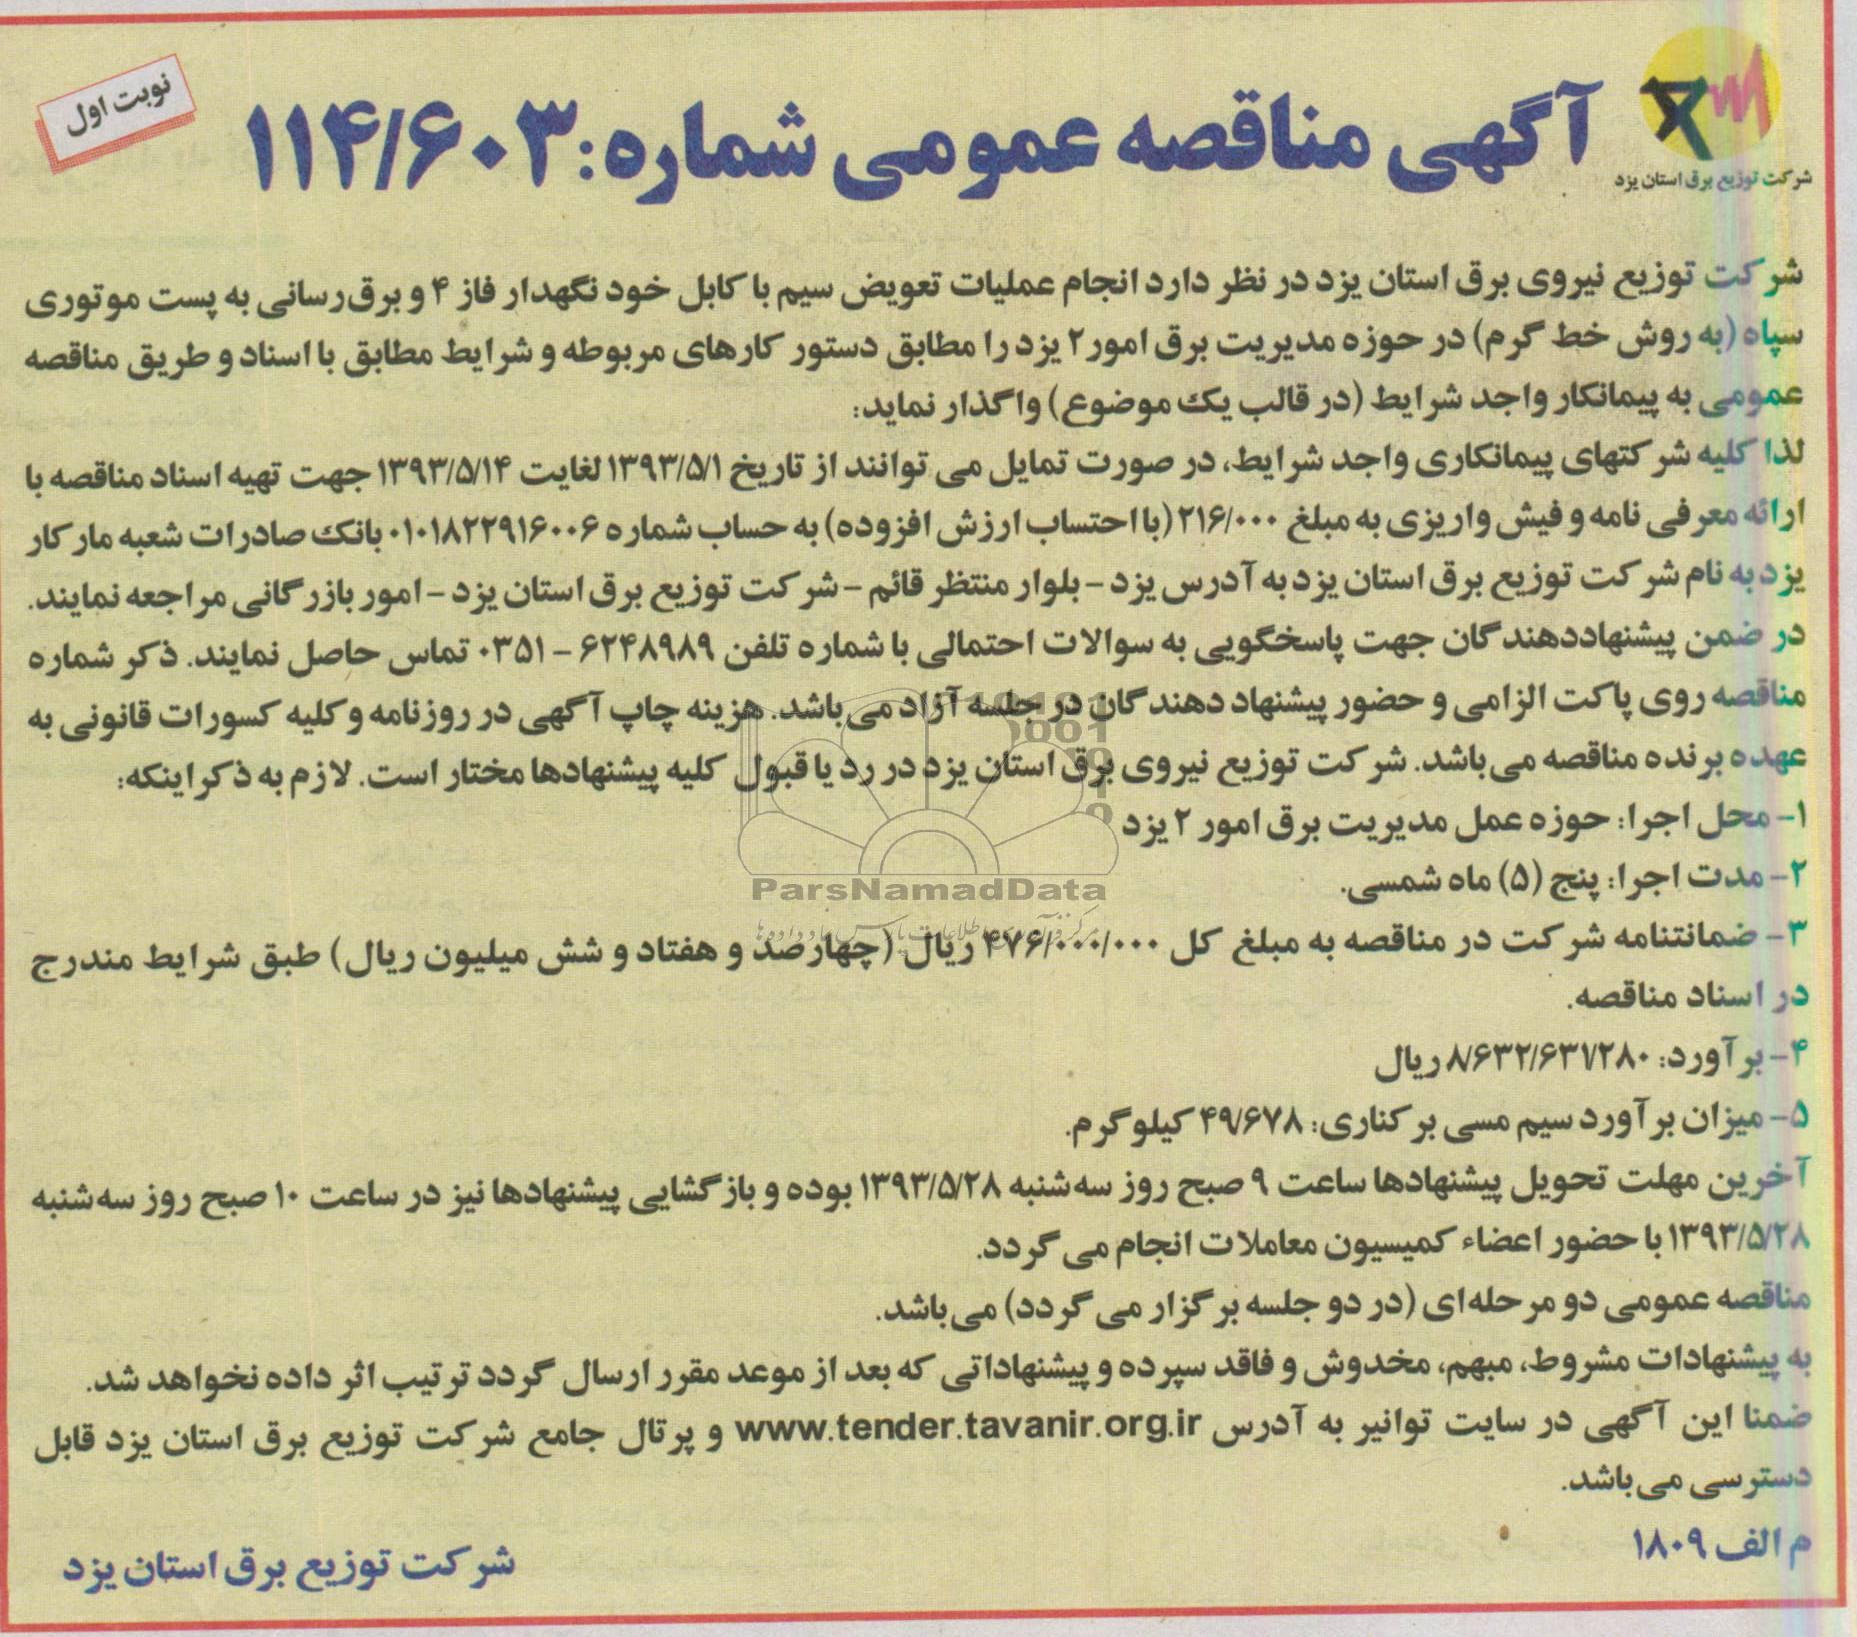 شرکت توزیع برق استان یزد
آگهی مناقصه عمومی شماره: ۱۱۴/۶۰۳
نوبت اول
شرکت توزیع نیروی برق استان یزد در نظر دارد انجام عملیات تعویض سیم با کابل خود نگهدار فاز ۴ و برق‌رسانی به پست موتوری
سپاه (به روش خط گرم) در حوزه مدیریت برق امور۲ یزد را مطابق دستور کارهای مربوطه و شرایط مطابق با اسناد و طریق مناقصه
عمومی به پیمانکار واجد شرایط (در قالب یک موضوع) واگذار نماید:
لذا کلیه شرکتهای پیمانکاری واجد شرایط، در صورت تمایل می توانند از تاریخ ۱۳۹۳/۵/۱ لغایت ۱۳۹۳/۵/۱۴ جهت تهیه اسناد مناقصه با
ارائه معرفی نامه و فیش واریزی به مبلغ ۲۱۶/۰۰۰ (با احتساب ارزش افزوده) به حساب شماره ۰۱۰۱۸۲۲۹۱۶۰۰۶ بانک صادرات شعبه مارکار
یزد به نام شرکت توزیع برق استان یزد به آدرس یزد - بلوار منتظر قائم - شرکت توزیع برق استان یزد - امور بازرگانی مراجعه نمایند.
در ضمن پیشنهاددهندگان جهت پاسخگویی به سوالات احتمالی با شماره تلفن ۶۲۴۸۹۸۹ - ۰۳۵۱ تماس حاصل نمایند. ذکر شماره
مناقصه روی پاکت الزامی و حضور پیشنهاد دهندگان در جلسه آزاد می‌باشد. هزینه چاپ آگهی در روزنامه و کلیه کسورات قانونی به
عهده برنده مناقصه می‌باشد. شرکت توزیع نیروی برق استان یزد در رد یا قبول کلیه پیشنهادها مختار است. لازم به ذکر اینکه:
۱- محل اجرا: حوزه عمل مدیریت برق امور ۲ یزد
۲- مدت اجرا: پنج (۵) ماه شمسی.
ParsNamadData
۳- ضمانتنامه شرکت در مناقصه به مبلغ کل ۴۷۶/۰۰۰/۰۰۰ ریال (چهارصد و هفتاد و شش میلیون ریال) طبق شرایط مندرج
در اسناد مناقصه.
۴- برآورد: ۸/۶۳۲/۶۳۱/۲۸۰ ریال
۵- میزان برآورد سیم مسی برکناری: ۴۹/۶۷۸ کیلوگرم.
آخرین مهلت تحویل پیشنهادها ساعت ۹ صبح روز سه‌شنبه ۱۳۹۳/۵/۲۸ بوده و بازگشایی پیشنهادها نیز در ساعت ۱۰ صبح روز سه‌شنبه
۱۳۹۳/۵/۲۸ با حضور اعضاء کمیسیون معاملات انجام می گردد.
مناقصه عمومی دو مرحله‌ای (در دو جلسه برگزار می گردد) می‌باشد.
به پیشنهادات مشروط، مبهم، مخدوش و فاقد سپرده و پیشنهاداتی که بعد از موعد مقرر ارسال گردد ترتیب اثر داده نخواهد شد.
ضمنا این آگهی در سایت توانیر به آدرس www.tender.tavanir.org.ir و پرتال جامع شرکت توزیع برق استان یزد قابل
دسترسی می‌باشد.
م الف ۱۸۰۹
شرکت توزیع برق استان یزد